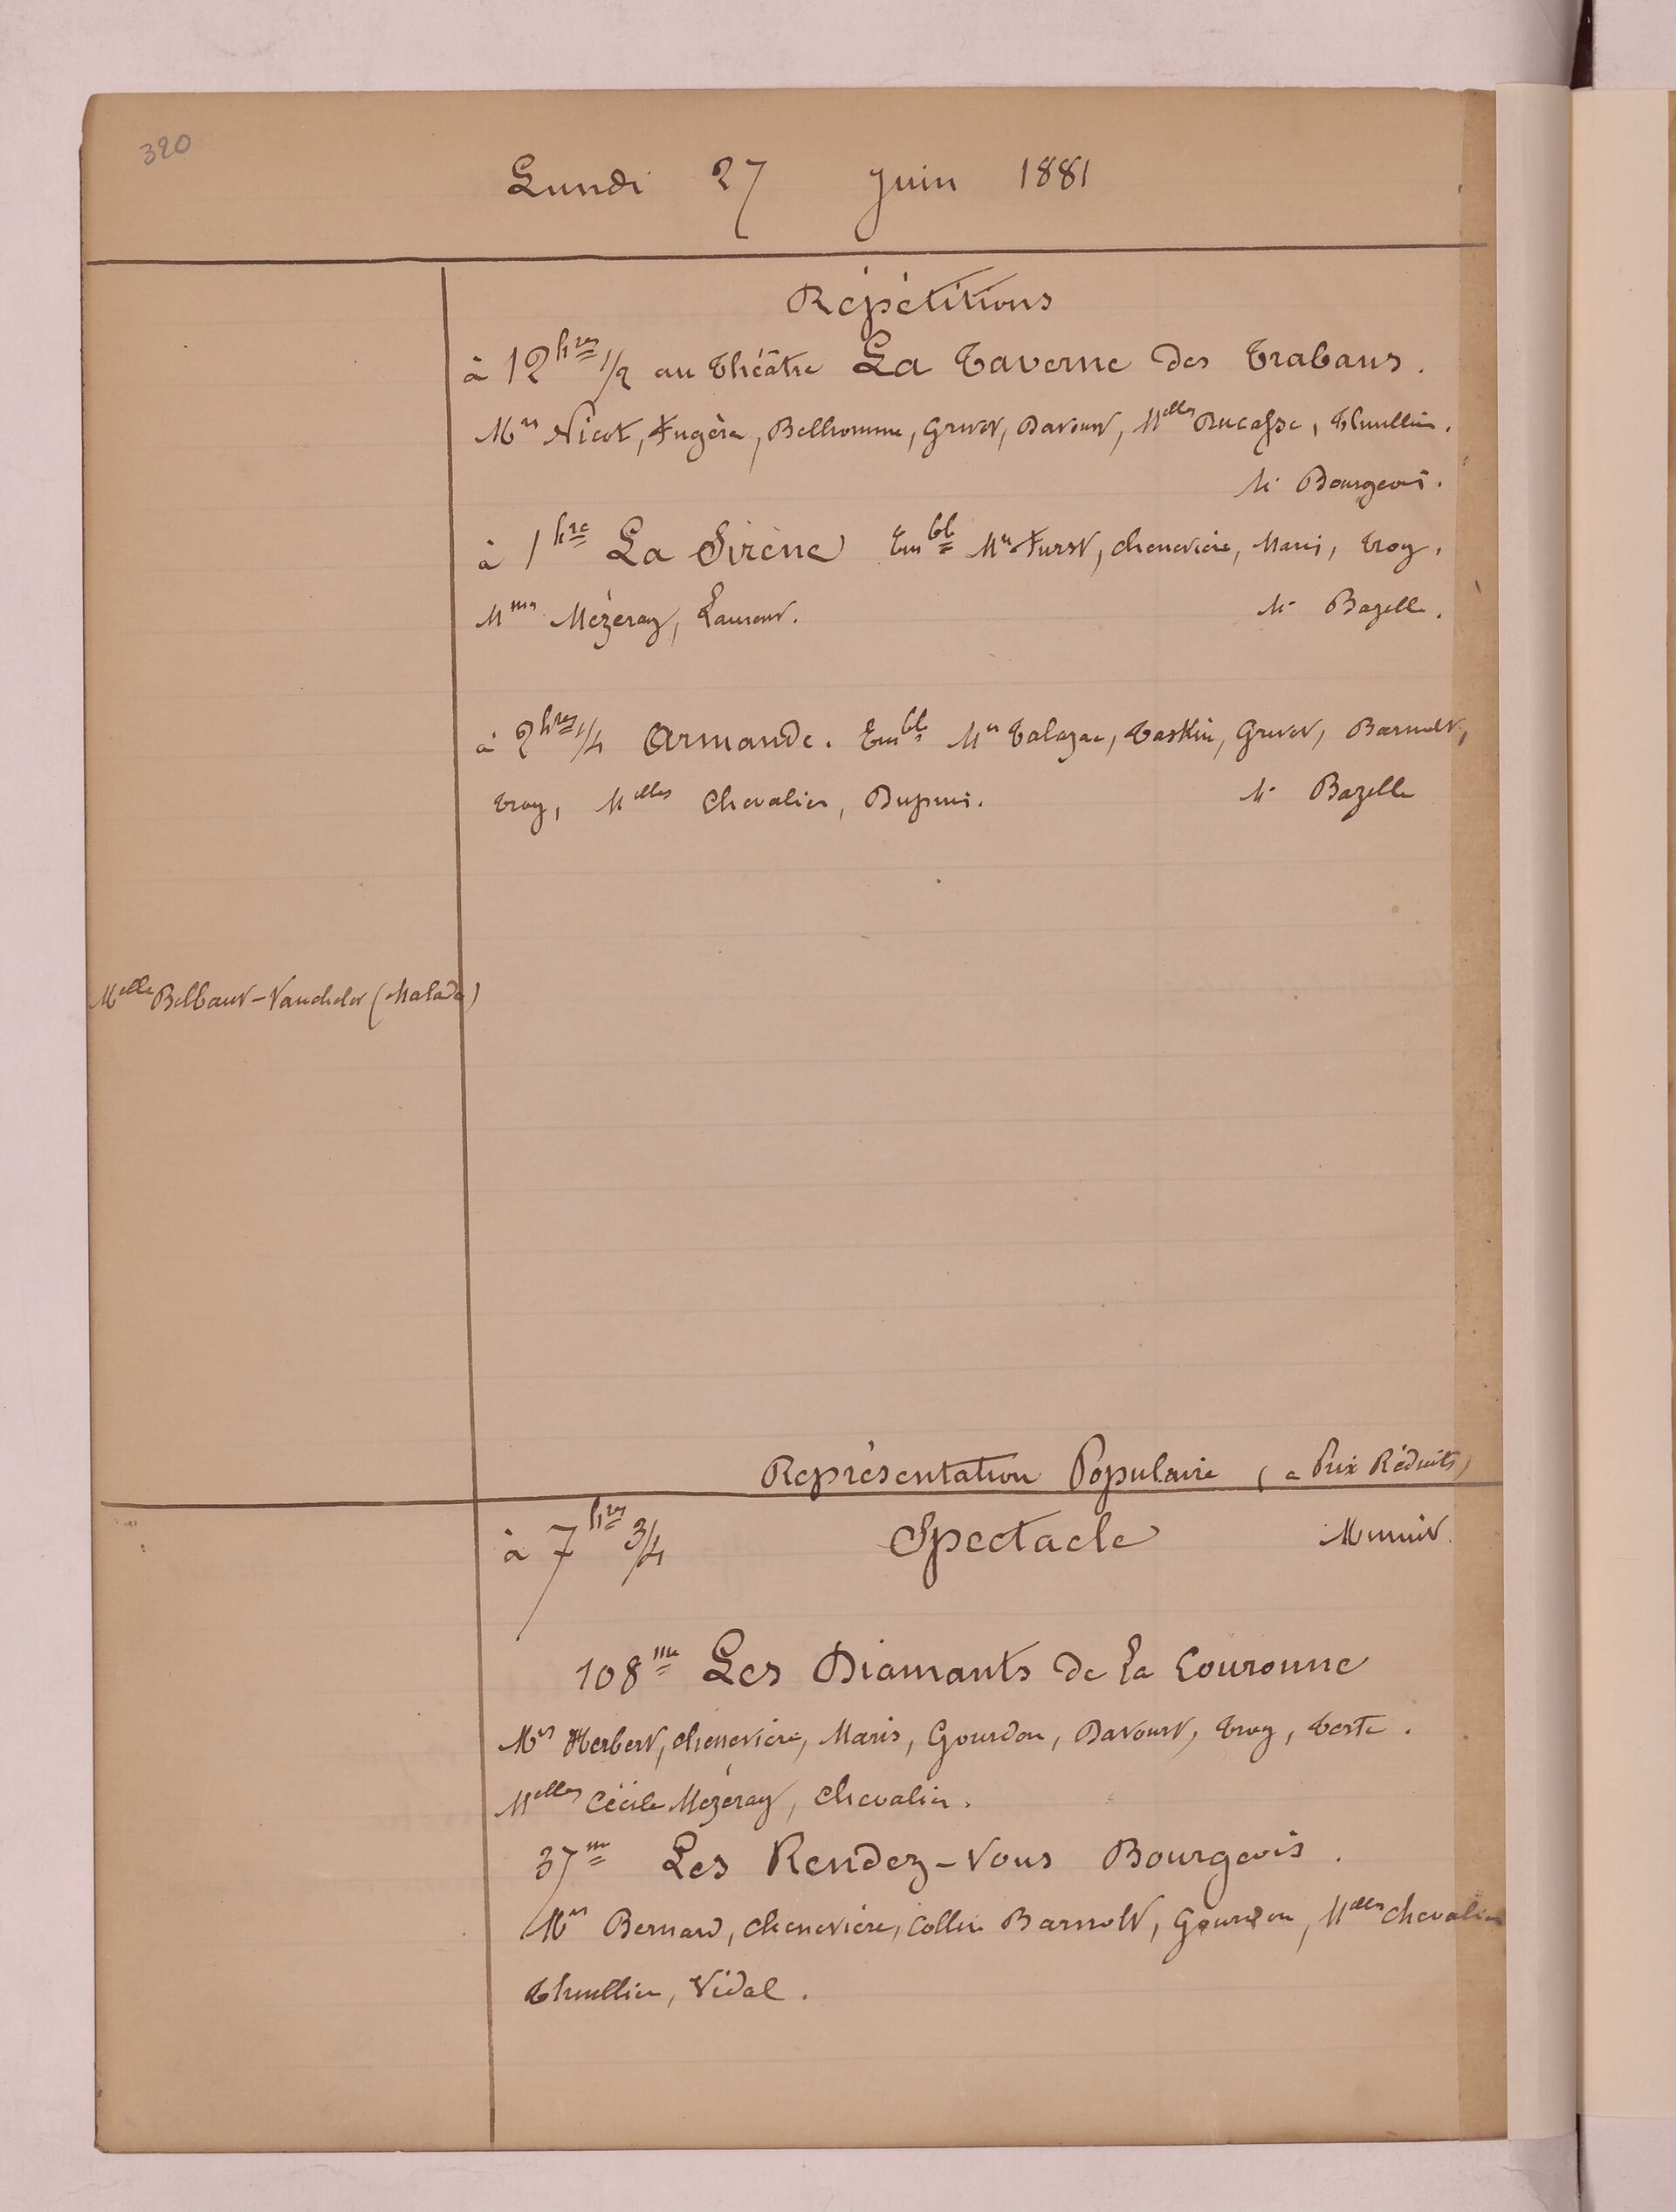 320
Lundi 27 Juin 1881
Répétitions
à 12 hres 1/2 au Théâtre La Taverne des Trabans.
Mrs Nicot, Fugère, Belhomme, Grivot, Davoust, Melles Ducasse, Thuillier.
Mr Bourgeois.
à 1 hre La Sirène Embl Mrs Furst, Chenevière, Maris, Troy,
Mmes Mézeray, Laurent. Mr Bazille.
à 2 hres 1/4 Armande. Embl Mrs Talazac, Taskin, Grivot, Barnolt,
Troy, Melles Chevalier, Dupuis. Mr Bazille
Melle Bilbaut-Vauchelet (Malade)
Représentation Populaire (à Prix Réduits)
à 7 hres 3/4 Spectacle Minuit.
108me Les Diamants de la Couronne
Mrs Herbert, Chenevière, Maris, Gourdon, Davoust, Troy, Teste.
Melles Cécile Mézeray, Chevalier.
37me Les Rendez-Vous Bourgeois.
Mrs Bernard, Chenevière, Collin Barnolt, Gourdon, Melles Chevalier
Thuillier, Vidal.